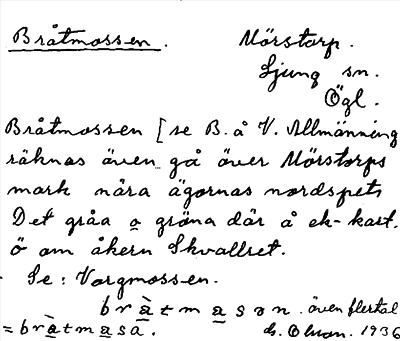 Bråtmossen. Mörstorp.
Ljung sn.
Ögl.
Bråtmossen [se B. å V. Allmänning
räknas även gå över Mörstorps
mark nära ägornas nordspets
Det gråa o gröna där å ek-kart.
ö om åkern Skvallret.
Se: Vargmossen.
bràtmasən. även flertal
= bràtmasa. ds. Olsson. 1936